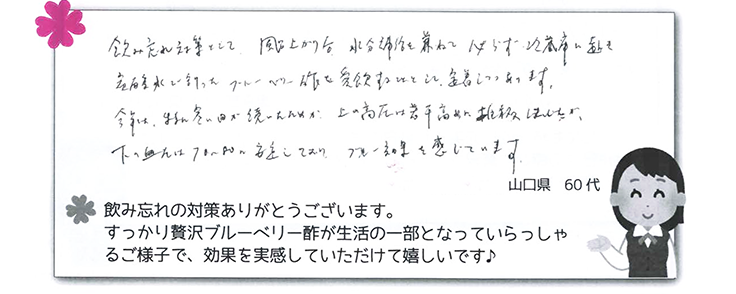 飲み忘れ対策として、風呂上がり 水分補給を兼ねて 必らず 冷蔵庫に
炭酸水で割ったブルーベリー酢を愛飲することとし、定着しつつあります。
今年は、特に寒い日が続いたためか、上の高圧は若干高めに推移しましたが、
下の血圧は70〜80に安定しており、ブルー効果を感じています。
山口県 60代
飲み忘れの対策ありがとうございます。
すっかり贅沢ブルーベリー酢が生活の一部となっていらっしゃ
るご様子で、効果を実感していただけて嬉しいです♪